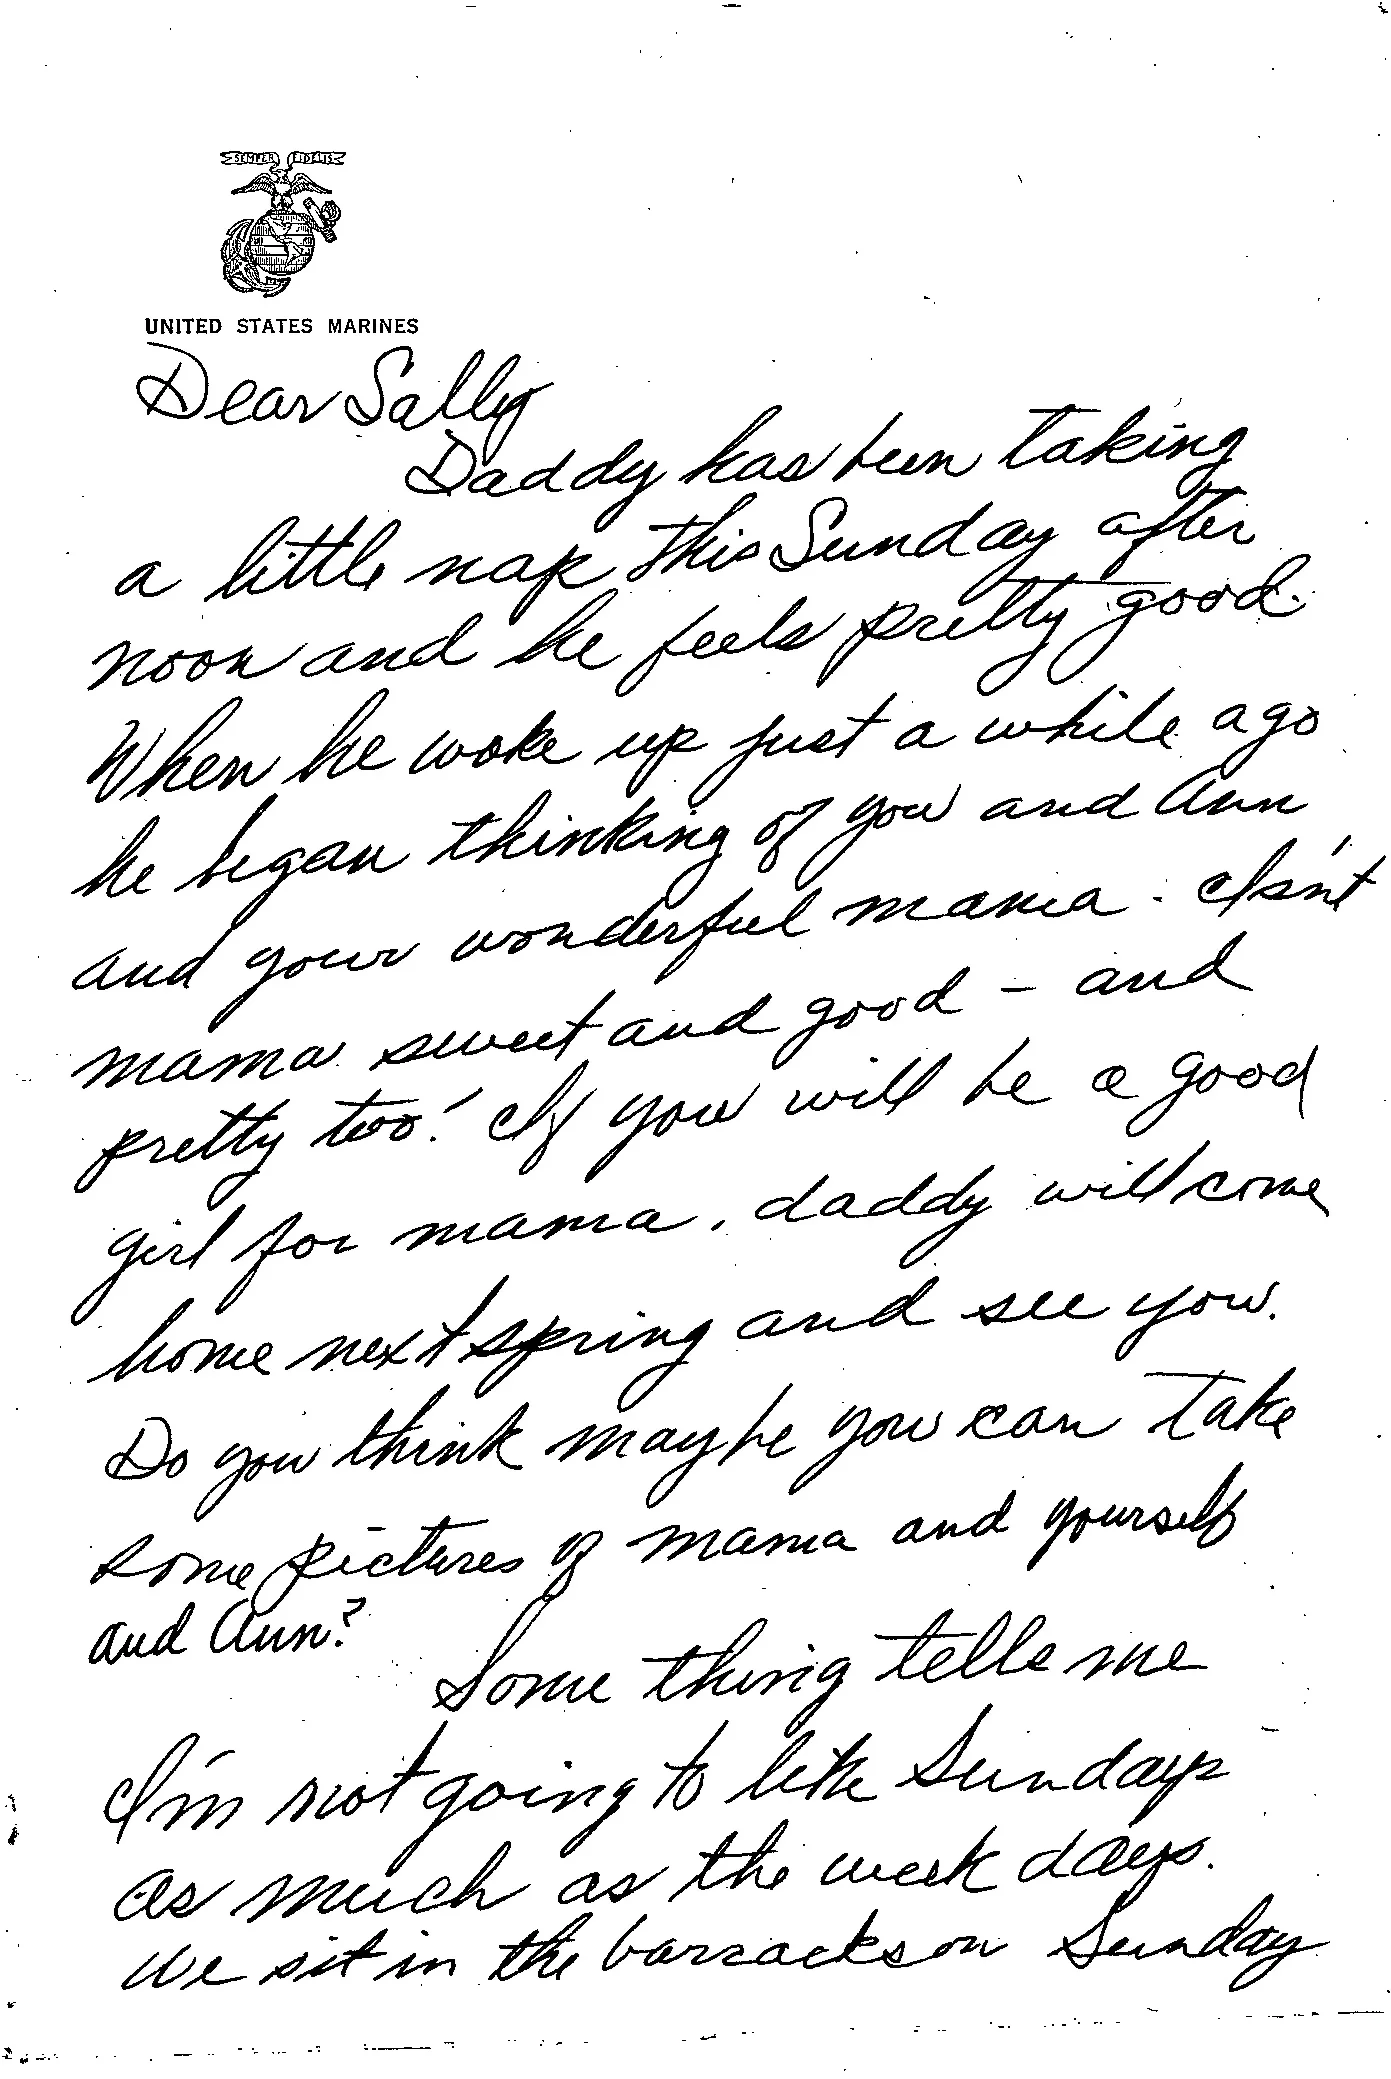 SEMPER FIDELIS
UNITED STATES MARINES
Dear Sally
Daddy has been taking
a little nap this Sunday after
noon and he feels pretty good.
When he woke up just a while ago
he began thinking of you and Ann
and your wonderful mama. Isn't
mama sweet and good - and
pretty too! If you will be a good
girl for mama, daddy will come
home next spring and see you.
Do you think maybe you can take
some pictures of mama and yourself
and Ann?
Some thing tells me
I'm not going to like Sundays
as much as the week days.
We sit in the barracks on Sunday